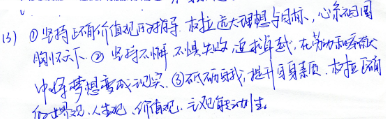 (3) ①坚持正确价值观的指导 树立远大理想与目标，心系祖国
胸怀天下。②坚持不懈 不惧失败 追求卓越，在劳动和奉献
中将梦想变成现实。③砥砺自我，提升自身素质，树立正确
的世界观，人生观，价值观，主观能动创生。